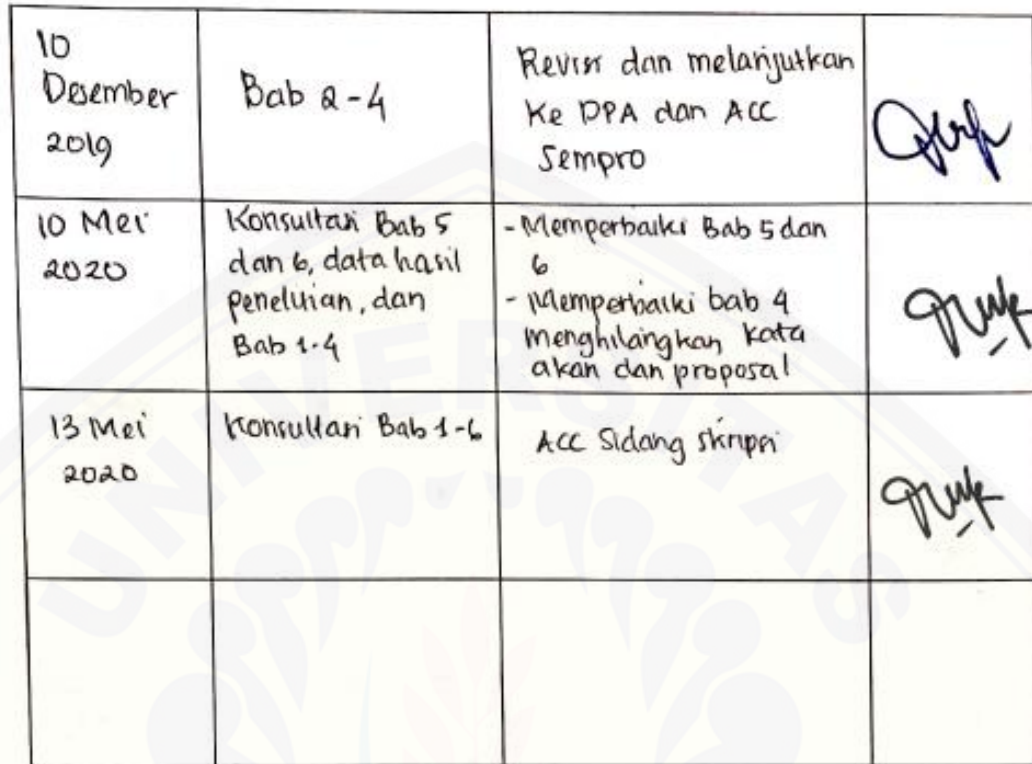 10
Desember
2019
Bab 2-4
Revisi dan melanjutkan
Ke DPA dan ACC
Sempro
10 Mei
2020
Konsultasi Bab 5
dan 6, data hasil
penelitian, dan
Bab 1-4
- Memperbaiki Bab 5 dan
6
- Memperbaiki bab 4
menghilangkan kata
akan dan proposal
13 Mei
2020
Konsultasi Bab 1-6
ACC Sidang skripsi
UNIVERSITAS